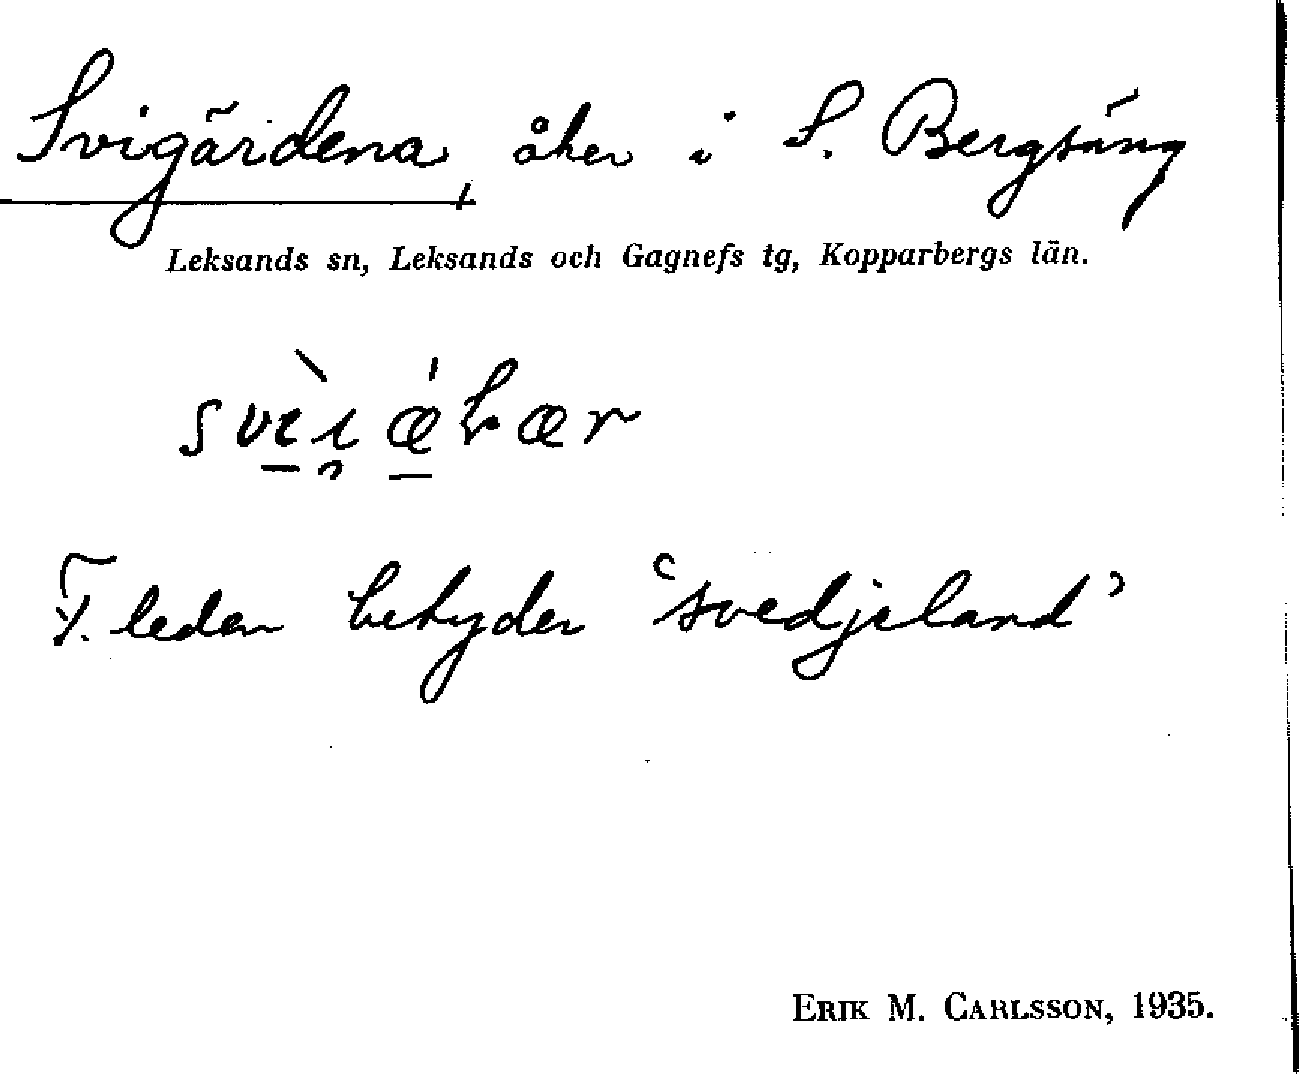 Svigärdena, åker i S. Bergsäng
Leksands sn, Leksands och Gagnefs tg, Kopparbergs län.
F. leden betyder 'svedjeland'
ERIK M. CARLSSON, 1935.